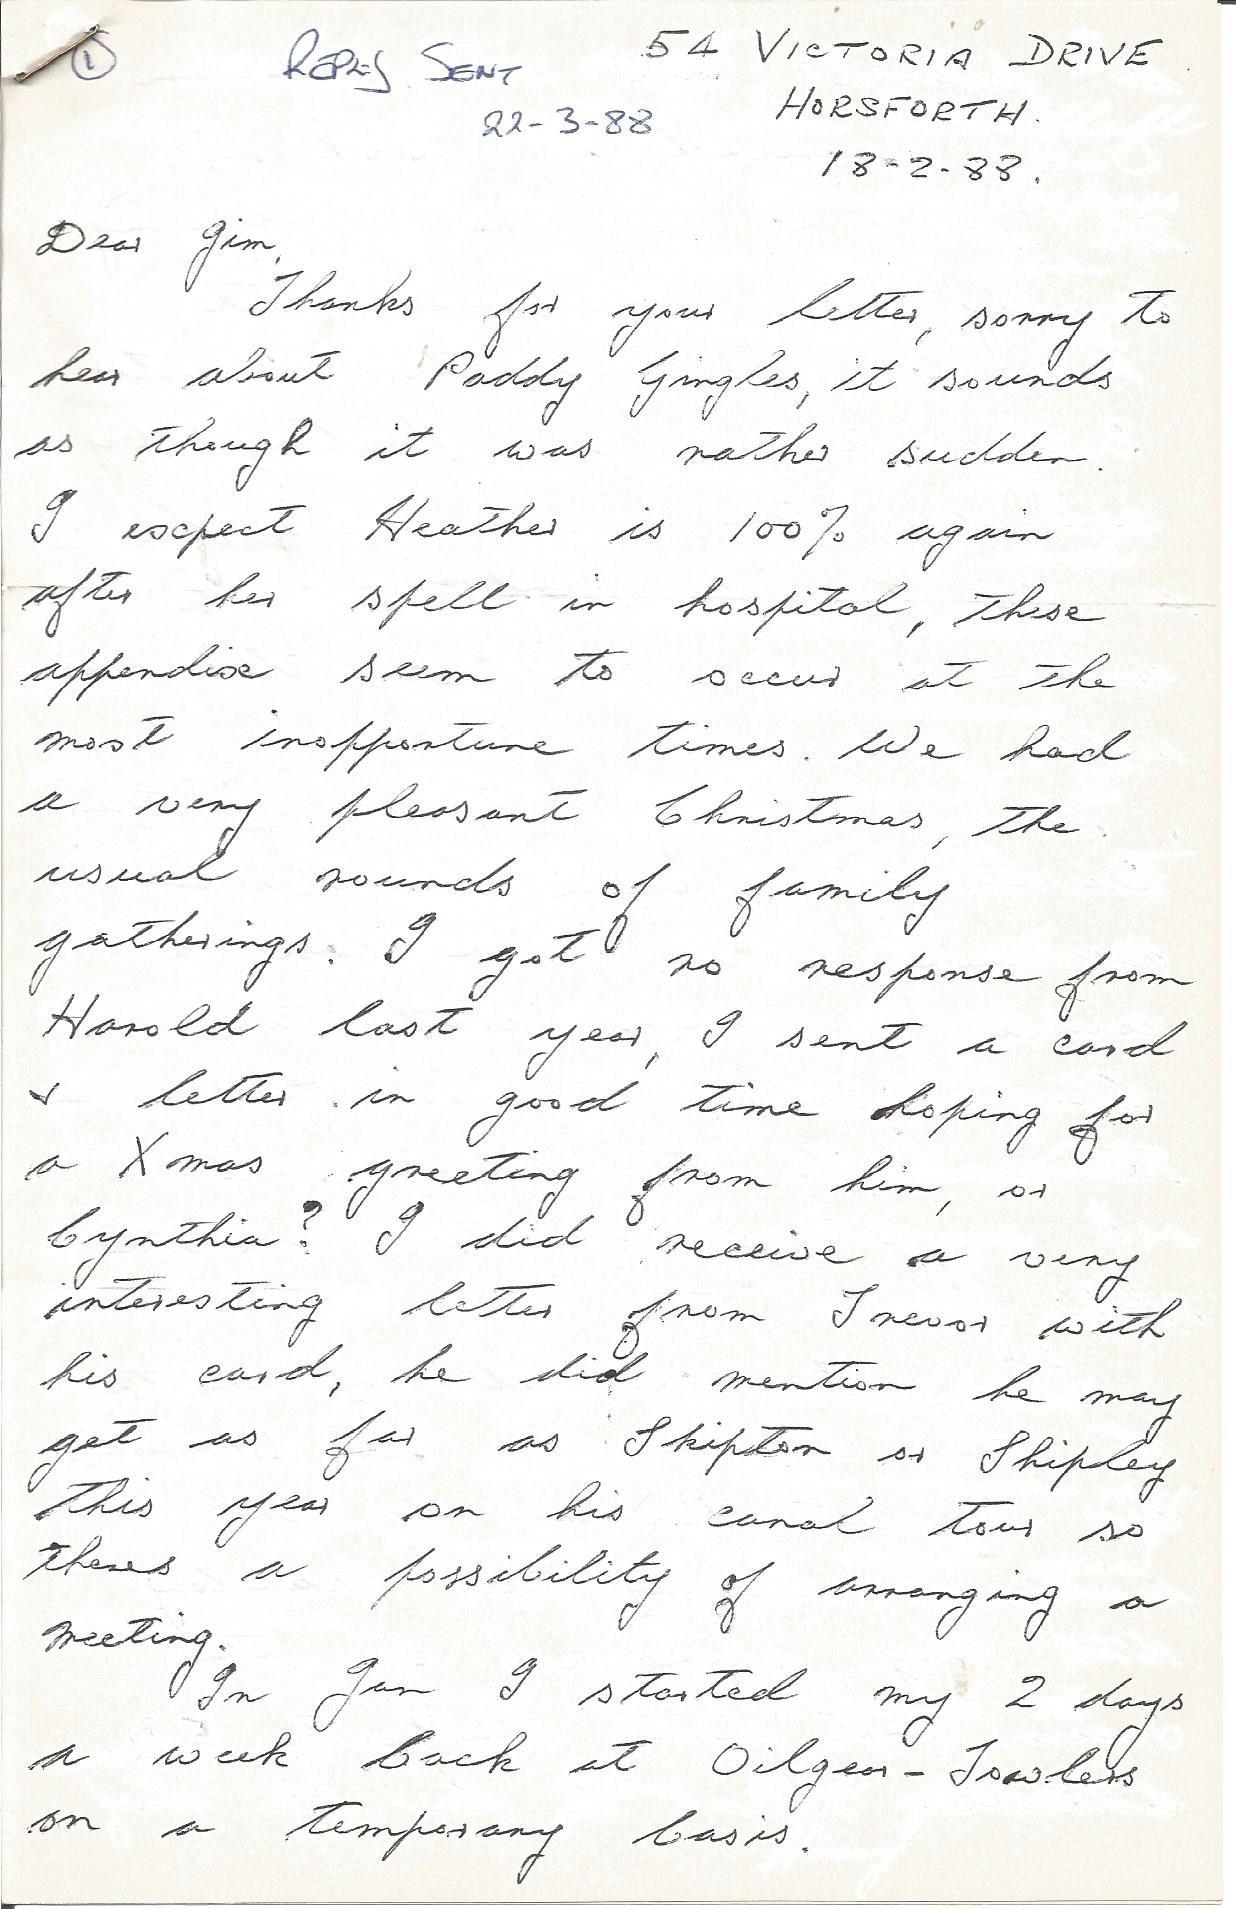 ① Reply Sent
22-3-88
54 VICTORIA DRIVE
HORSFORTH.
18-2-88.
Dear Jim,
Thanks for your letter, sorry to
hear about Paddy Gingles, it sounds
as though it was rather sudden.
I expect Heather is 100% again
after her spell in hospital, these
appendix seem to occur at the
most inopportune times. We had
a very pleasant Christmas, the
usual rounds of family
gatherings. I got no response from
Harold last year, I sent a card
& letter in good time hoping for
a Xmas greeting from him, or
Cynthia? I did receive a very
interesting letter from Trevor with
his card, he did mention he may
get as far as Skipton or Shipley
this year on his canal tour so
theres a possibility of arranging a
meeting.
In Jan I started my 2 days
a week back at Oilgear-Towlers
on a temporary basis.